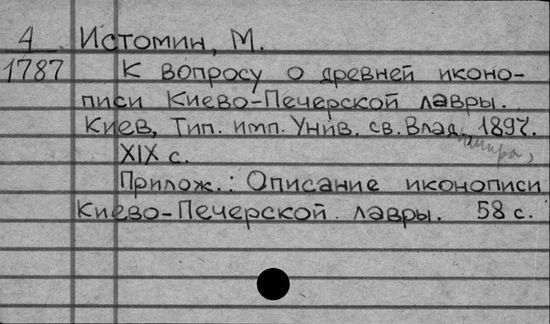 4 Истомин, М.
1787 К вопросу о древней иконо-
писи Киево-Печерской лавры.
Киев, Тип. имп. Унив. св. Влад., 1897.
мира,
XIX с.
Прилож.: Описание иконописи
Киево-Печерской лавры. 58 с.